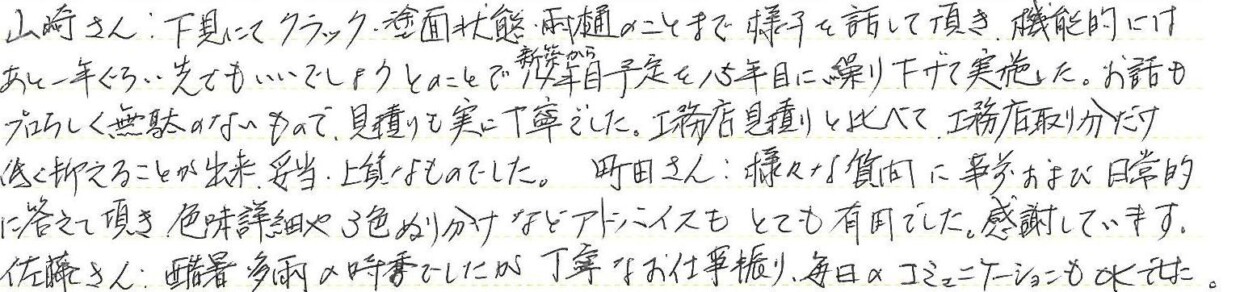 山崎さん：下見にてクラック・塗面状態・雨樋のことまで様子を話して頂き、機能的には
あと一年ぐらい先でもいいでしょうとのことで新築から14年目予定を15年目に繰り下げて実施した。お話も
プロらしく無駄のないもので、見積りも実に丁寧でした。工務店見積りと比べて、工務店取り分だけ
低く抑えることが出来、妥当・上質なものでした。 町田さん：様々な質問に事前および日常的
に答えて頂き、色味詳細や3色ぬり分けなどアドバイスもとても有用でした。感謝しています。
佐藤さん：酷暑多雨の時季でしたが丁寧なお仕事振り、毎日のコミュニケーションもOKでした。